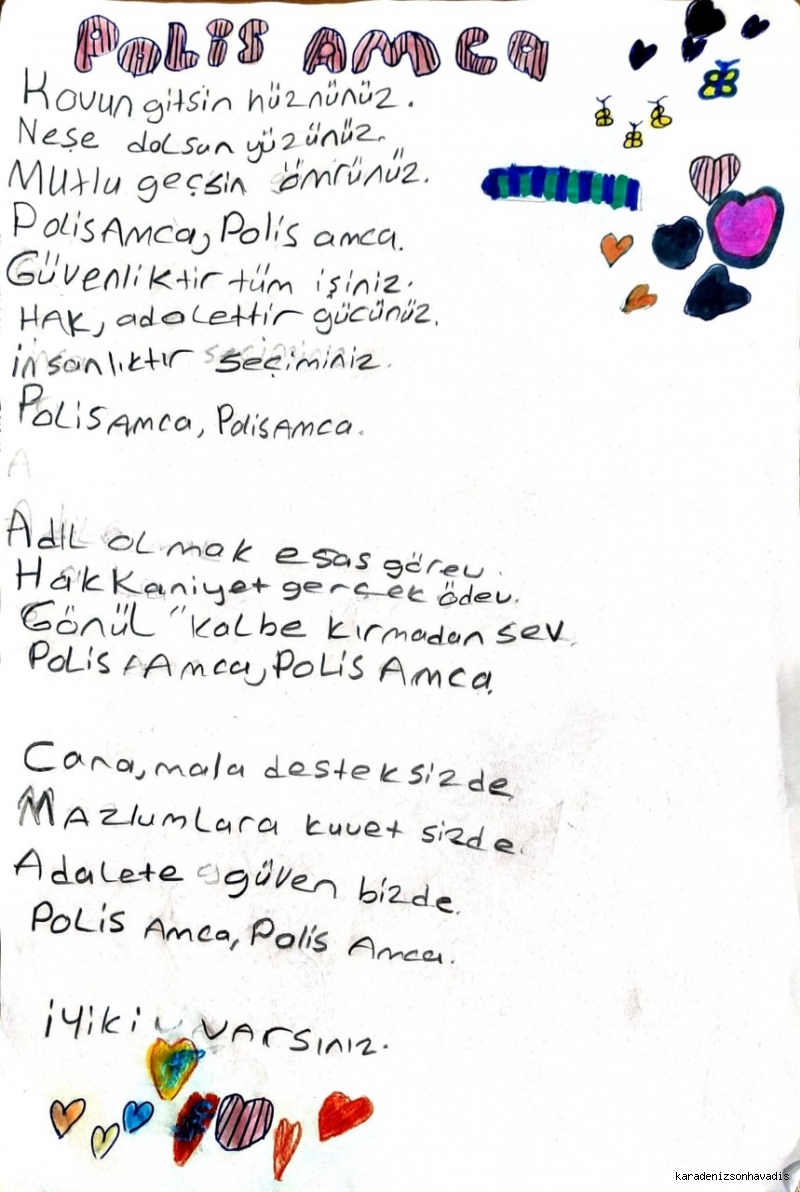 POLİS AMCA
Kovun gitsin hüznünüz.
Neşe dolsun yüzünüz.
Mutlu geçsin ömrünüz.
Polis Amca, Polis amca.
Güvenliktir tüm işiniz.
HAK, adalettir gücünüz.
insanlıktır seçiminiz.
Polis Amca, Polis Amca.
Adil olmak esas görev.
Hakkaniyet gerçek ödev.
Gönül "kalbe kırmadan sev.
Polis Amca, Polis Amca.
Cana, mala destek sizde
Mazlumlara kuvet sizde.
Adalete güven bizde.
Polis Amca, Polis Amca.
iyiki varsınız.
karadenizsonhavadis